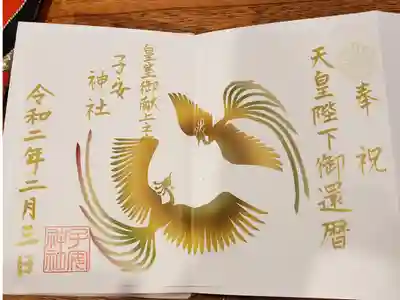 奉祝
天皇陛下御還暦
皇室御献上
子安神社
令和二年二月三日
子安神社